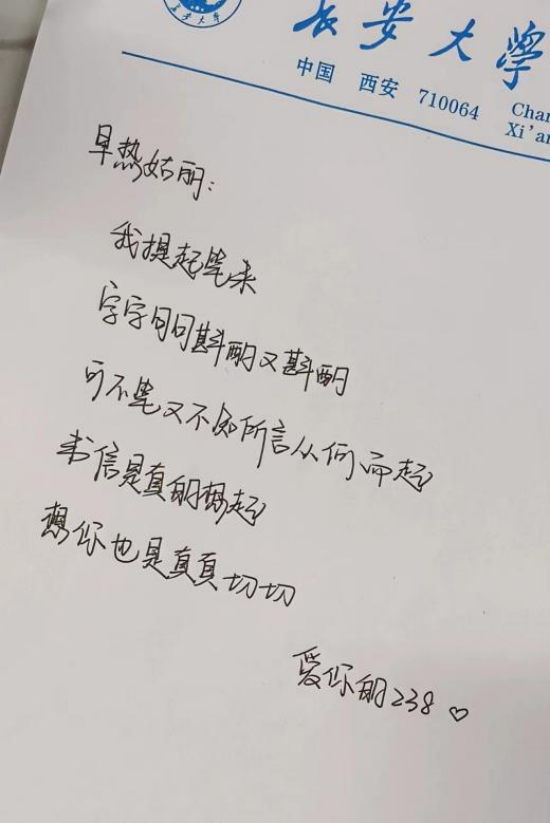 长安大学
长安大学
中国 西安 710064 Chan
Xi'an
早热姑丽:
我提起笔来
字字句句斟酌又斟酌
可不笔又不知所言从何而起
书信是真的想起
想你也是真真切切
爱你的238♡